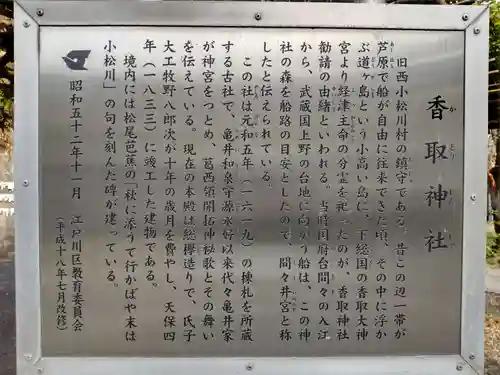 香取神社
かとりじんじゃ
旧西小松川村の鎮守である。昔この辺一帯が
芦原で船が自由に往来できた頃、その中に浮か
ぶ道ヶ島という小高い島に、下総国の香取大神
宮より経津主命の分霊を祀ったのが、香取神社
勧請の由緒といわれる。当時国府台間々の入江
から、武蔵国上野の台地に向かう船は、この神
社の森を船路の目安としたので、間々井宮と称
したと伝えられている。
この社は元和五年（一六一九）の棟札を所蔵
する古社で、亀井和泉守源永好以来代々亀井家
が神官をつとめ、葛西領開拓神秘歌とその舞い
を伝えている。現在の本殿は総欅造りで、氏子
大工牧野八郎次が十年の歳月を費やし、天保四
年（一八三三）に竣工した建物である。
境内には松尾芭蕉の「秋に添うて行かばや末は
小松川」の句を刻んだ碑が建っている。
昭和五十二年十一月　江戸川区教育委員会
（平成十八年七月改修）